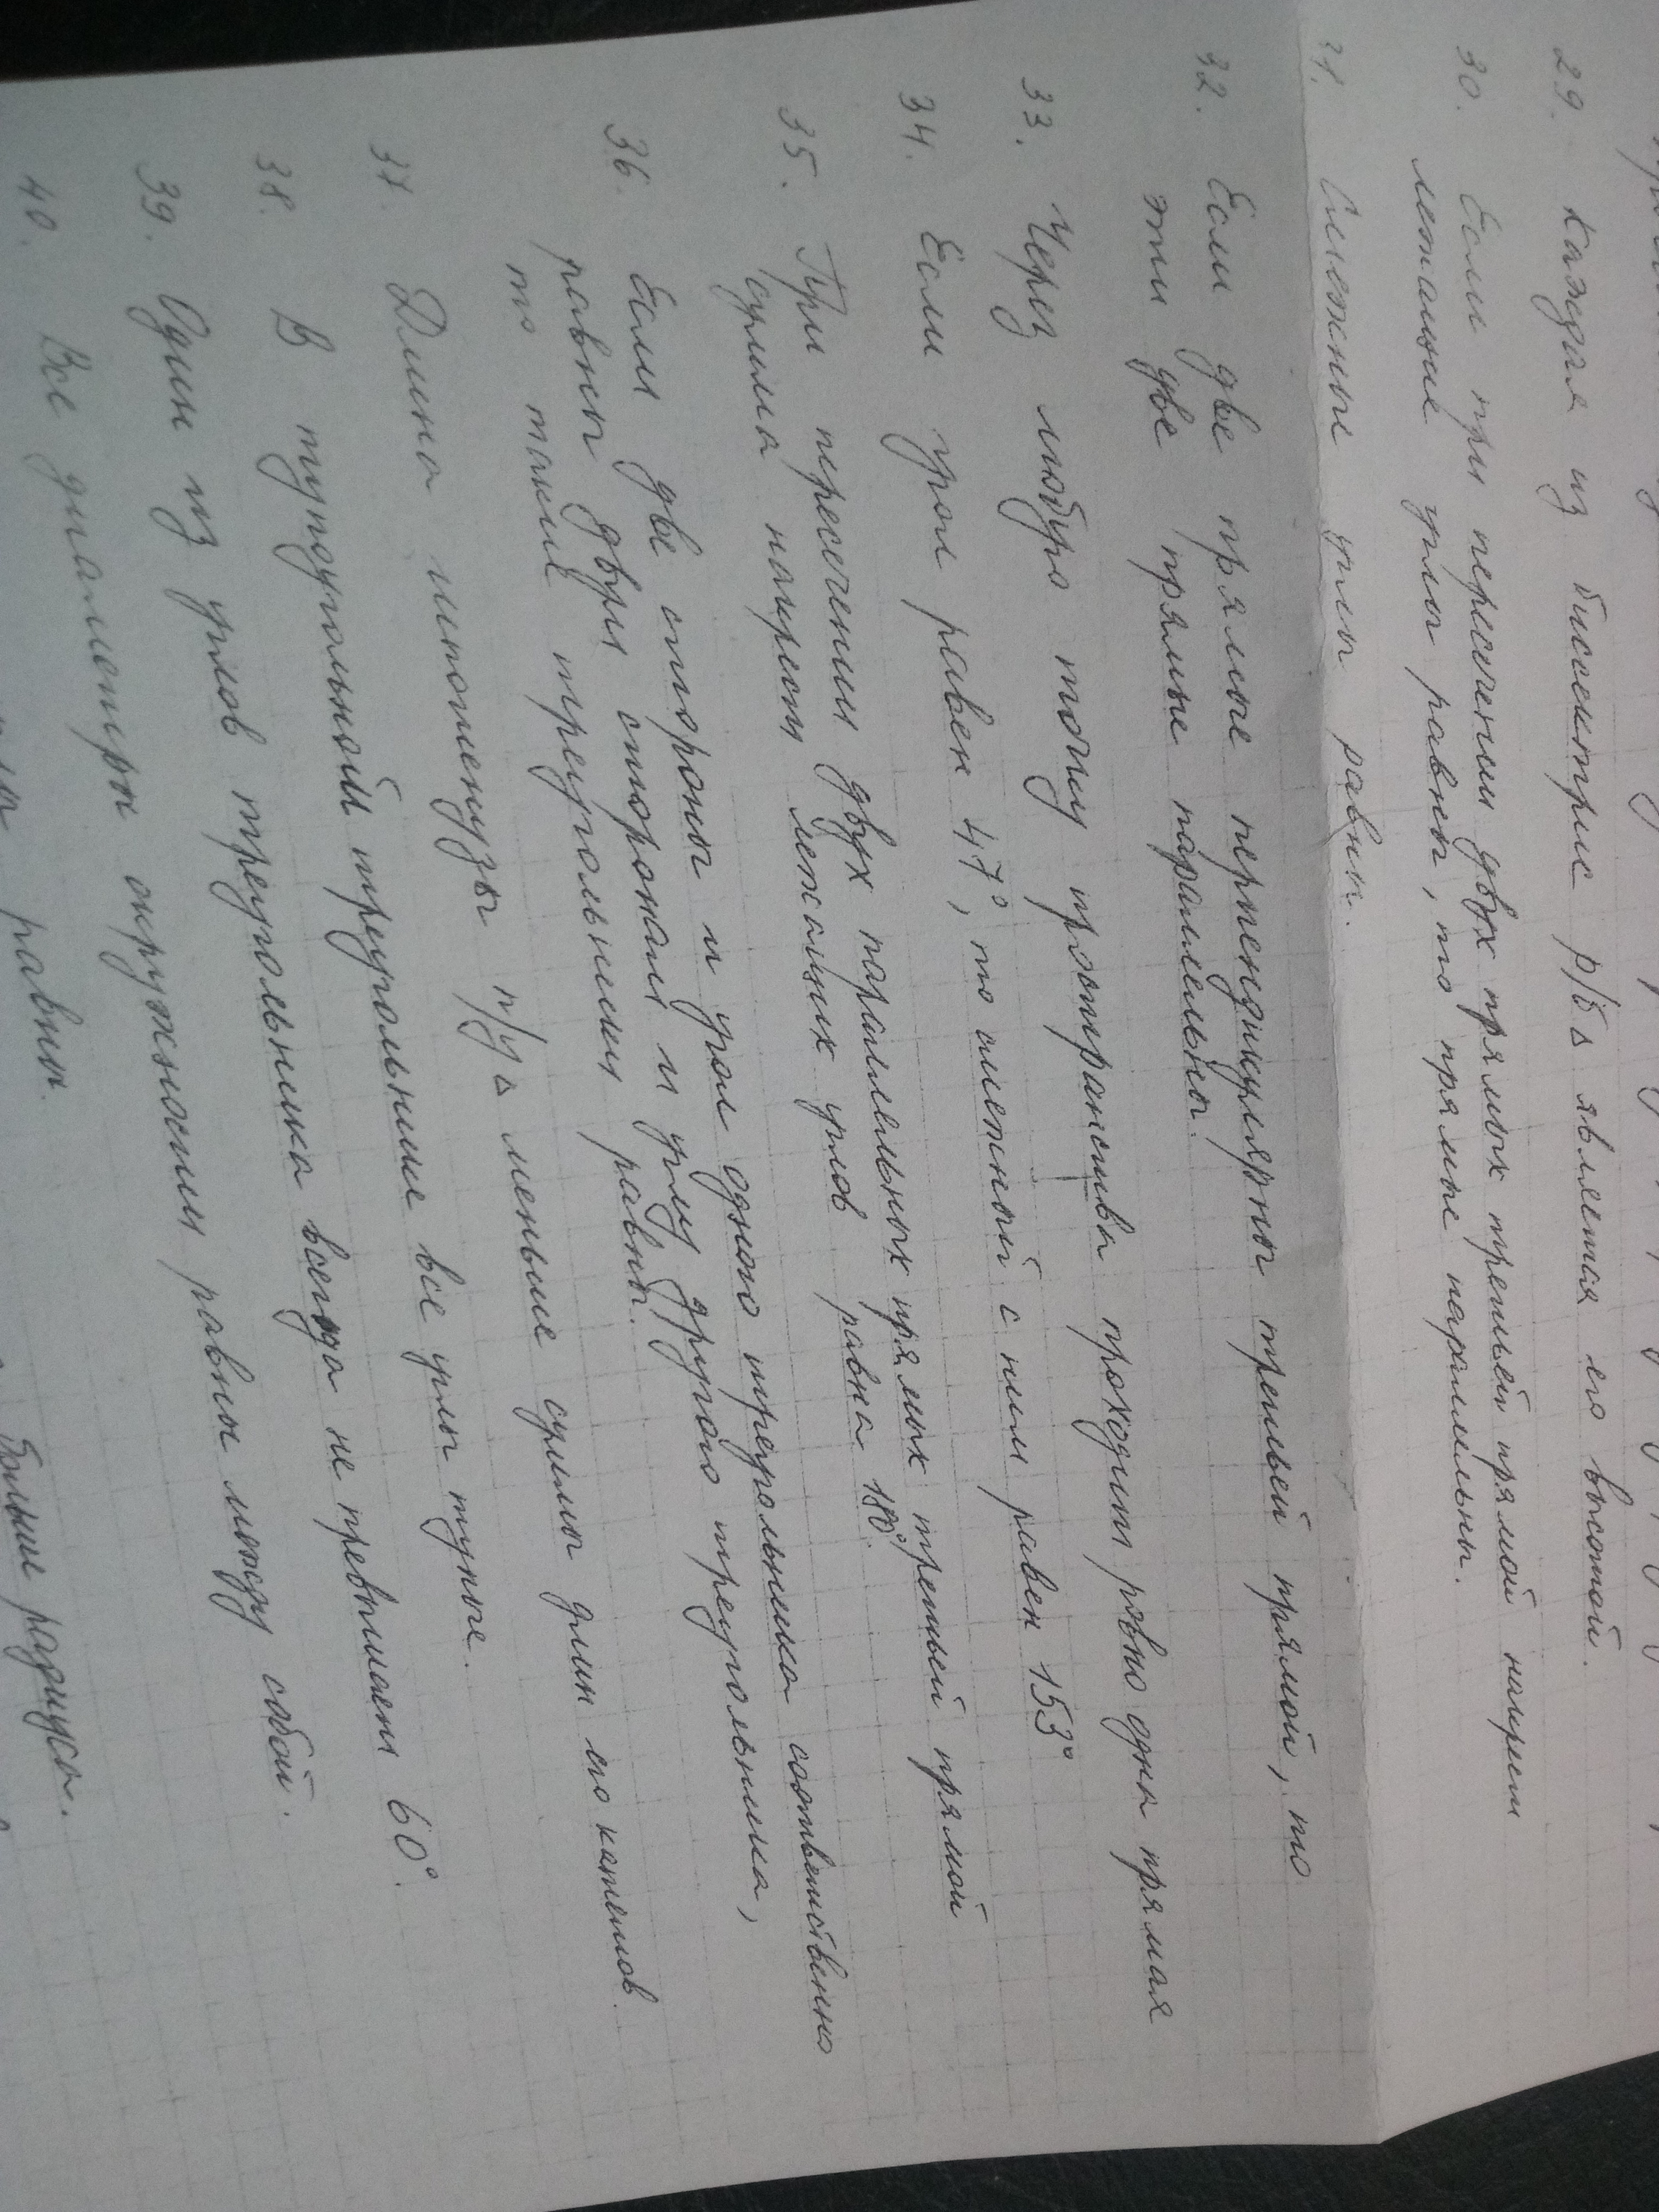 29. Каждая из биссектрис р/б △ является его высотой.
30. Если при пересечении двух прямых третьей прямой накрест
лежащие углы равны, то прямые параллельны.
31. Смежные углы равны.
32. Если две прямые перпендикулярны третьей прямой, то
эти две прямые параллельны.
33. Через любую точку пространства проходит ровно одна прямая
34. Если угол равен 47°, то смежный с ним равен 153°
35. При пересечении двух параллельных прямых третьей прямой
сумма накрест лежащих углов равна 180°.
36. Если две стороны и угол одного треугольника соответственно
равны двум сторонам и углу другого треугольника,
то такие треугольники равны.
37. Длина гипотенузы п/у △ меньше суммы длин его катетов.
38. В тупоугольном треугольнике все углы тупые.
39. Один из углов треугольника всегда не превышает 60°.
40. Все диаметры окружности равны между собой.
равны.
больше радиуса.